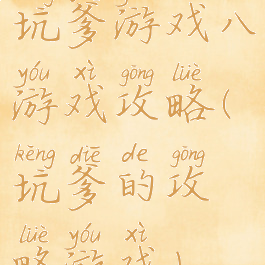 坑爹游戏八
yóu xì gōng lüè
游戏攻略(
kēng diē de gōng
坑爹的攻
lüè yóu xì
略游戏)